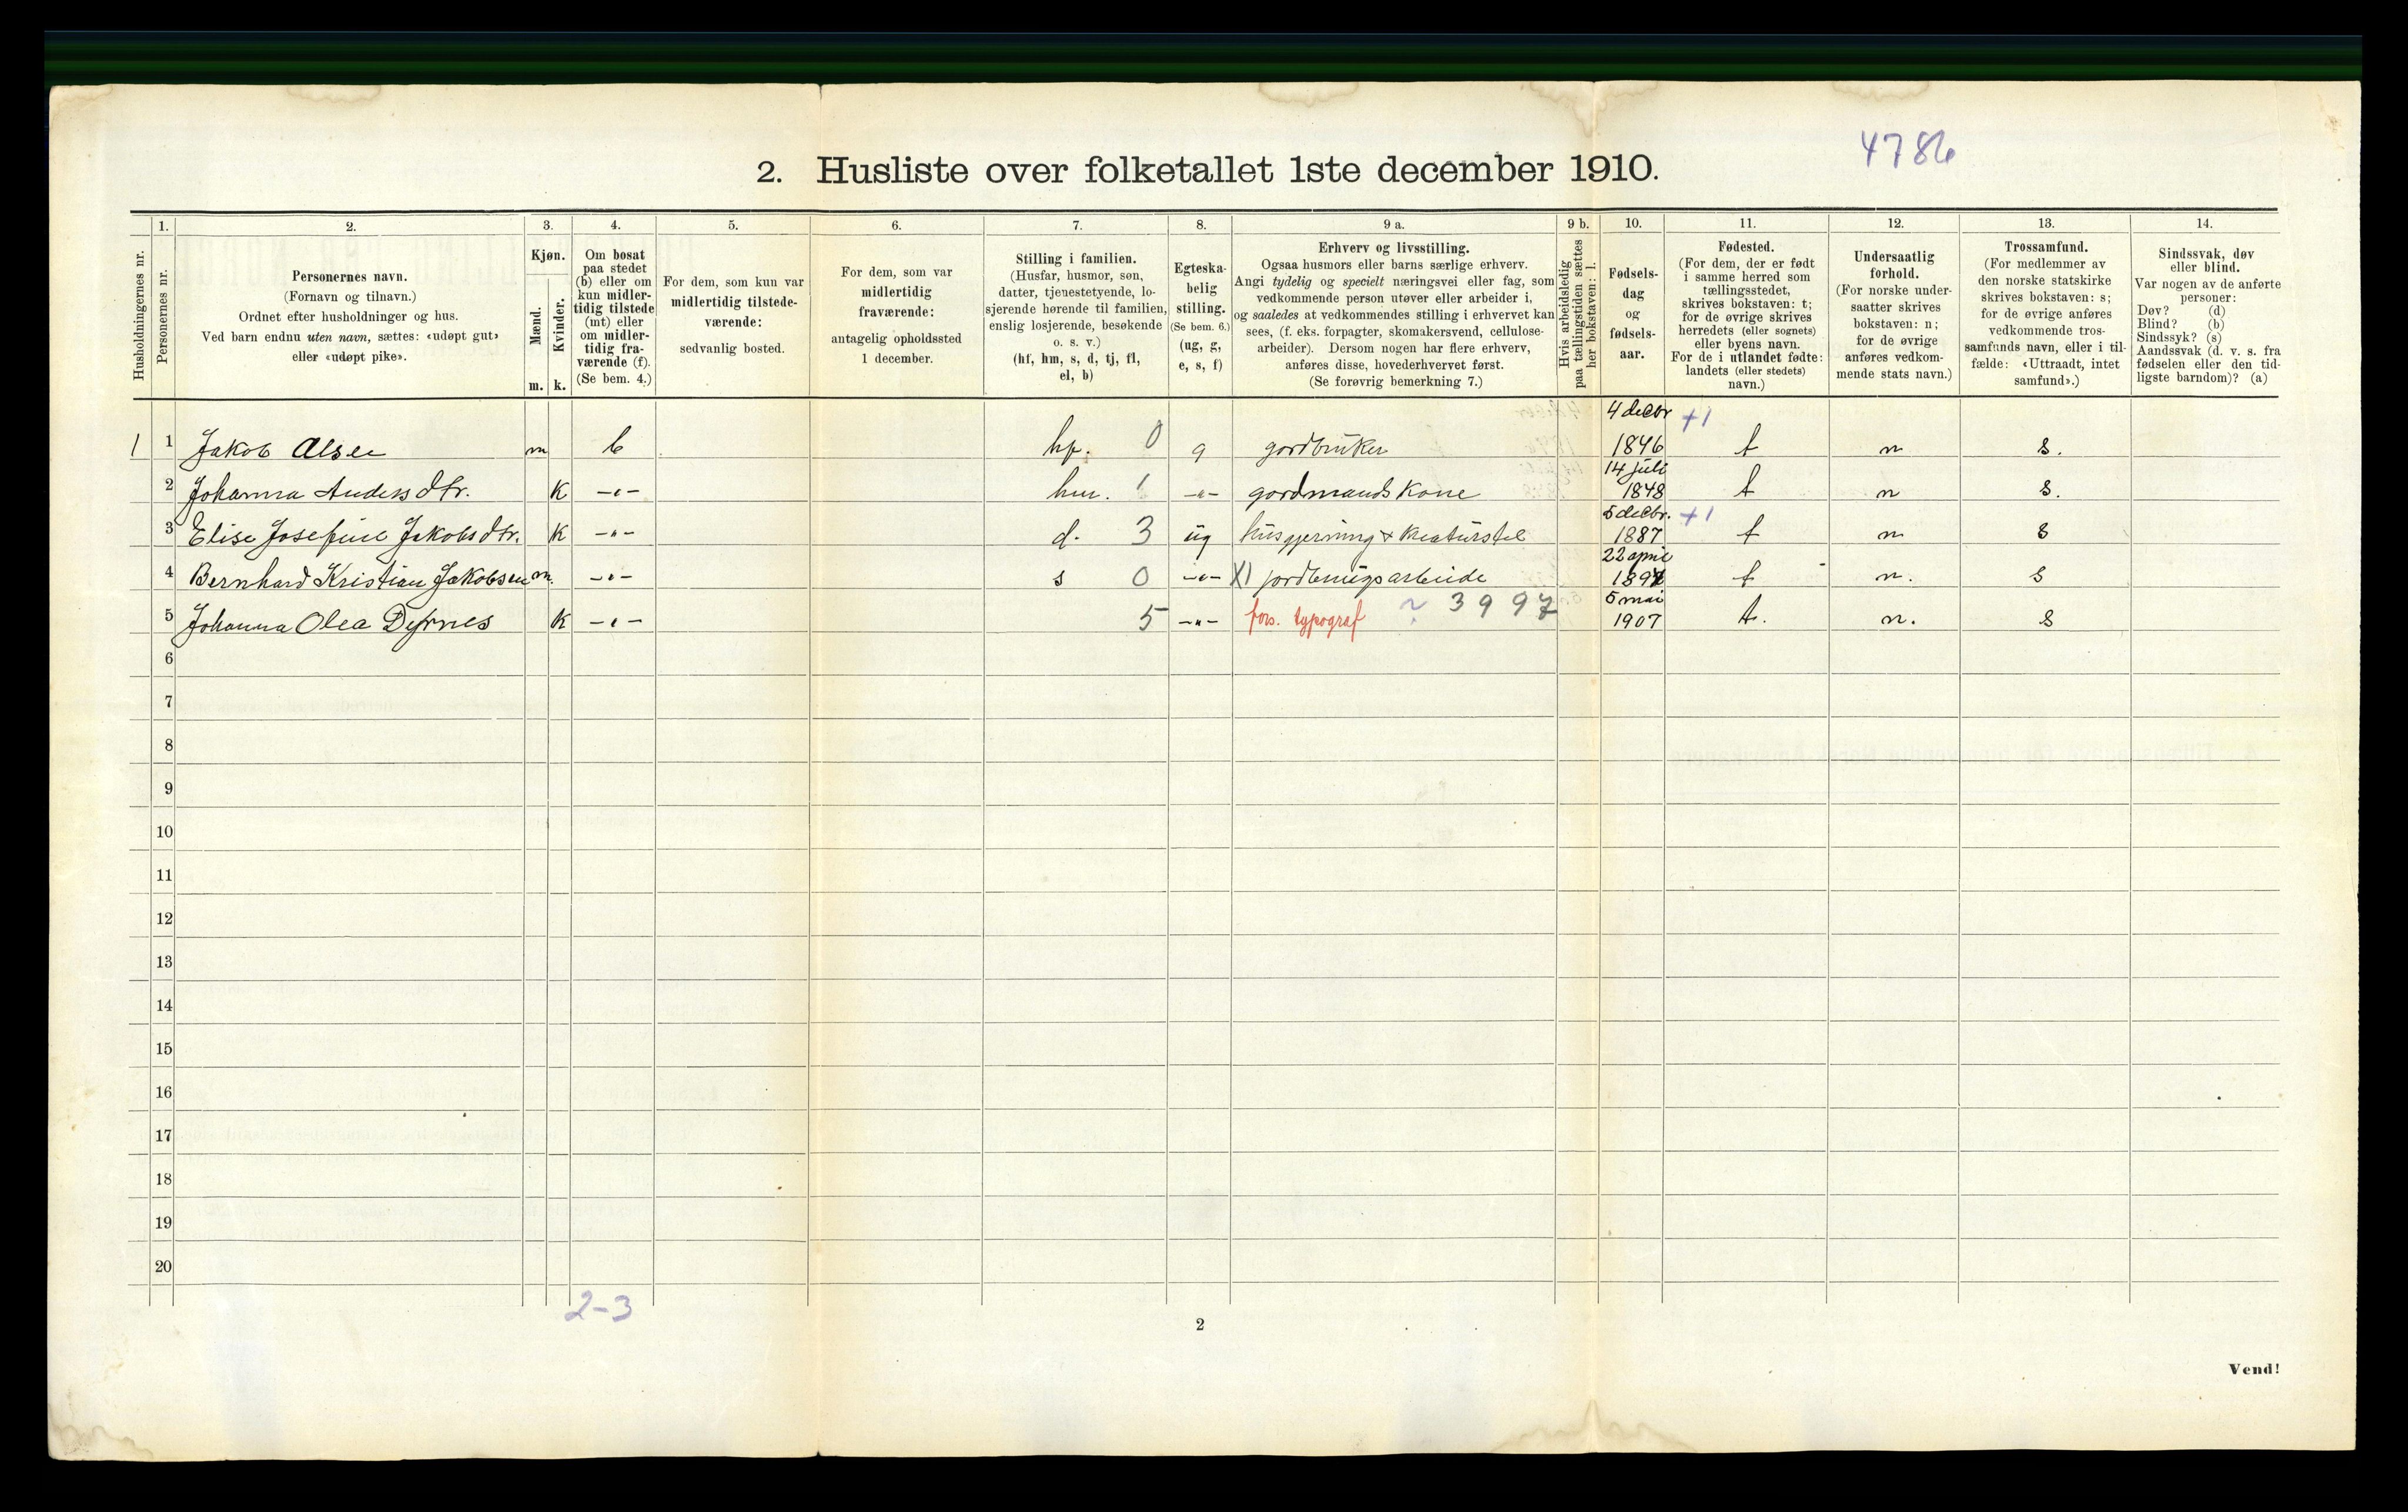 4786
2. Husliste over folketallet 1ste december 1910.
Husholdningernes nr.
1.
Personernes nr.
2.
Personernes navn.
(Fornavn og tilnavn.)
Ordnet efter husholdninger og hus.
Ved barn endnu uten navn, sættes: «udøpt gut»
eller «udøpt pike».
3.
Kjøn.
Mænd.
Kvinder.
m. k.
4.
Om bosat
paa stedet
(b) eller om
kun midler-
tidig tilstede
(mt) eller
om midler-
tidig fra-
værende (f).
(Se bem. 4.)
5.
For dem, som kun var
midlertidig tilstede-
værende:
sedvanlig bosted.
6.
For dem, som var
midlertidig
fraværende:
antagelig opholdssted
1 december.
7.
Stilling i familien.
(Husfar, husmor, søn,
datter, tjenestetyende, lo-
sjerende hørende til familien,
enslig losjerende, besøkende
o. s. v.)
(hf, hm, s, d, tj, fl,
el, b)
8.
Egteska-
belig
stilling.
(Se bem. 6.)
(ug, g,
e, s, f)
9 a.
Erhverv og livsstilling.
Ogsaa husmors eller barns særlige erhverv.
Angi tydelig og specielt næringsvei eller fag, som
vedkommende person utøver eller arbeider i,
og saaledes at vedkommendes stilling i erhvervet kan
sees, (f. eks. forpagter, skomakersvend, cellulose-
arbeider). Dersom nogen har flere erhverv,
anføres disse, hovederhvervet først.
(Se forøvrig bemerkning 7.)
9 b.
Hvis arbeidsledig
paa tællingstiden sættes
her bokstaven: l.
10.
Fødsels-
dag
og
fødsels-
aar.
11.
Fødested.
(For dem, der er født
i samme herred som
tællingsstedet,
skrives bokstaven: t;
for de øvrige skrives
herredets (eller sognets)
eller byens navn.
For de i utlandet fødte:
landets (eller stedets)
navn.)
12.
Undersaatlig
forhold.
(For norske under-
saatter skrives
bokstaven: n;
for de øvrige
anføres vedkom-
mende stats navn.)
13.
Trossamfund.
(For medlemmer av
den norske statskirke
skrives bokstaven: s;
for de øvrige anføres
vedkommende tros-
samfunds navn, eller i til-
fælde: «Uttraadt, intet
samfund».)
14.
Sindssvak, døv
eller blind.
Var nogen av de anførte
personer:
Døv? (d)
Blind? (b)
Sindssyk? (s)
Aandssvak (d. v. s. fra
fødselen eller den tid-
ligste barndom)? (a)
1 1 Jakob Olsen m b hf. 0 g gordbruker 4 decbr 1846 +1 t n s.
2 Johanna Andersdtr. K -"- hm. 1 -"- gordmands Kone 14 juli 1848 t n s.
3 Elise Josefine Jakobsdtr. K -"- d. 3 ug husgjerning & Kreaturstel 5 decbr. 1887 +1 t n s
4 Bernhard Kristian Jakobsen m. -"- s 0 -"- X) jordbrugsarbeide 22 april 1891 t n. s
5 Johanna Olea Dyrnes K -"- 5 -"- fors. typograf ~ 3997 5 mai 1907 t. n. s
6
7
8
9
10
11
12
13
14
15
16
17
18
19
20
2-3
2
Vend!